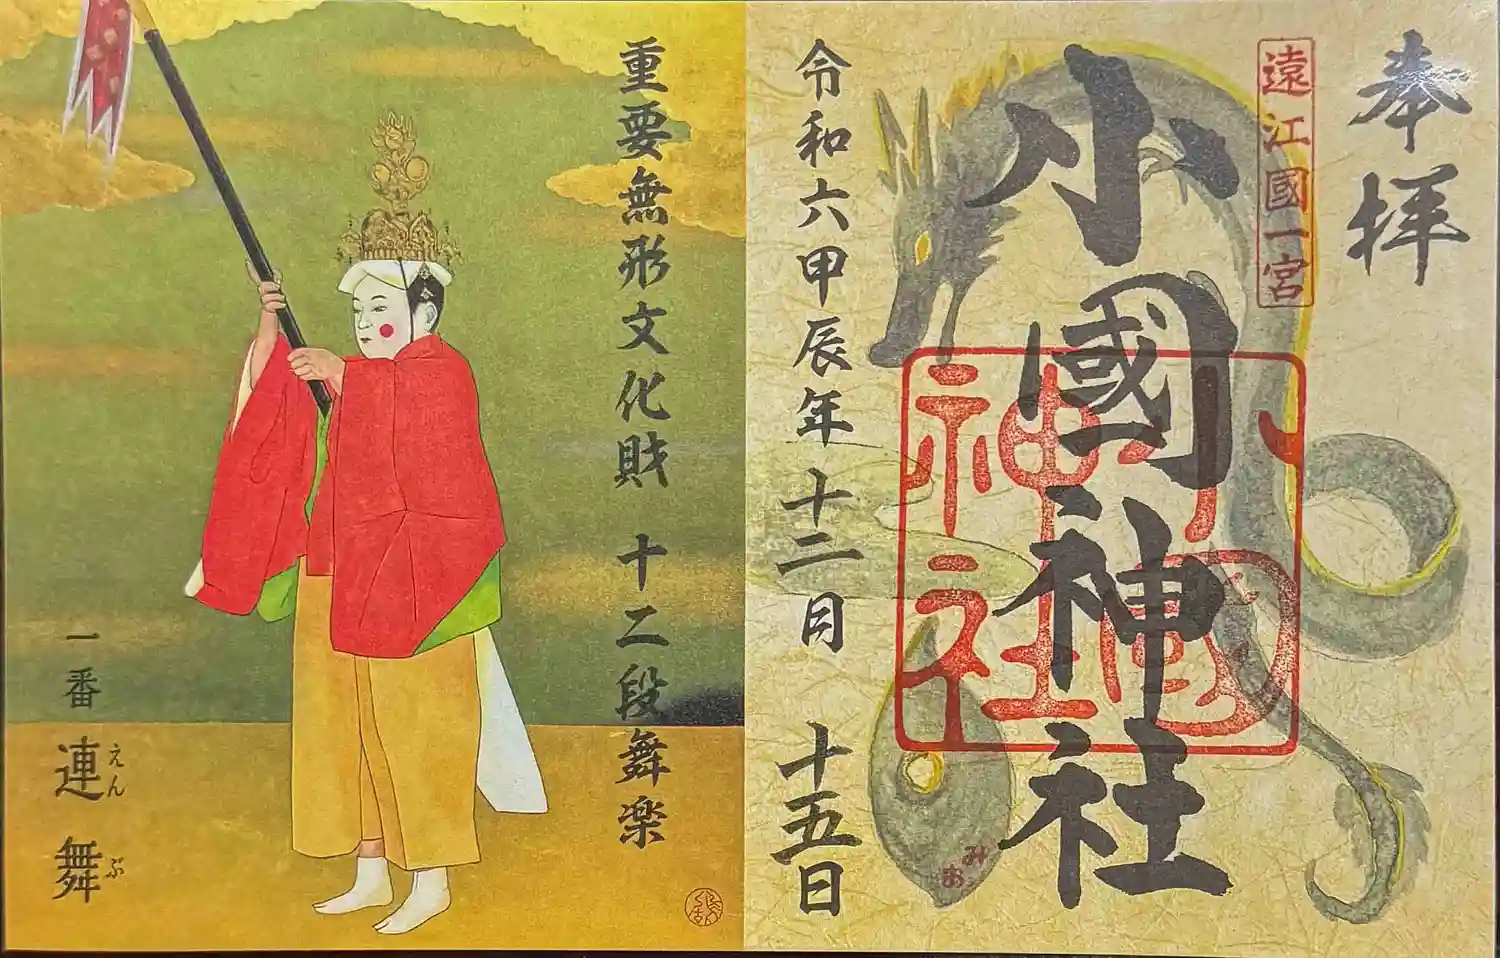 奉拝
遠江國一宮
小國神社
小國神社
令和六甲辰年十二月 十五日
みお
重要無形文化財 十二段舞楽
一番 連舞
えんぶ